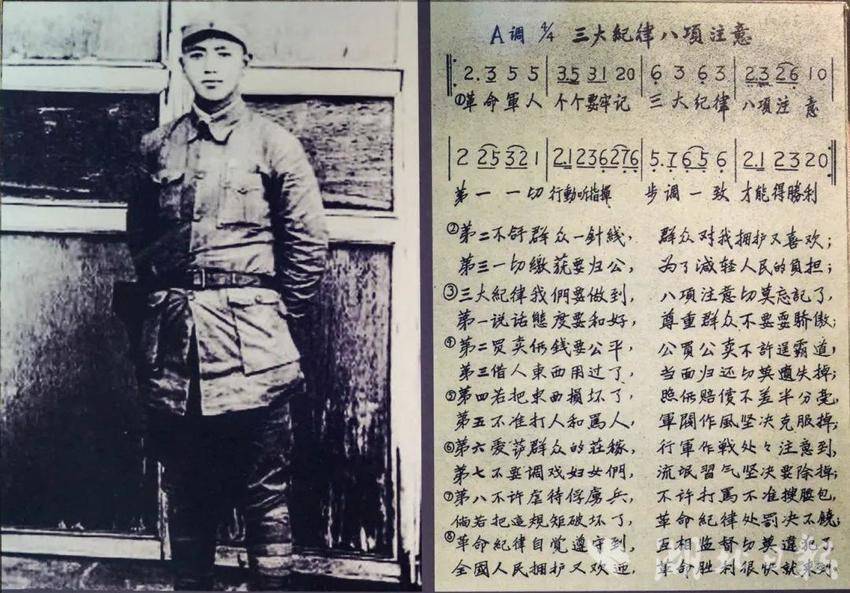 A调 4/4 三大紀律八項注意
2. 3 5 5 | 3 5 3 1 2 0 | 6 3 6 3 | 2 3 2 6 1 0
①革命軍人 个个要牢记 三大紀律 八項注 意
2 2 5 3 2 1 | 2 1 2 3 6 2 7 6 | 5. 7 6 5 6 | 2. 1 2 3 2 0
第一 一切 行動听指揮 步调一致 才能得勝利
②第二不許群众一針綫， 群众对我拥护又喜欢；
第三一切繳获要归公， 为了減轻人民的負担；
③三大紀律我們要做到， 八項注意切莫忘記了，
第一说话態度要和好， 尊重群众不要耍驕傲；
④第二买卖价錢要公平， 公買公卖不許逞霸道，
第三借人東西用过了， 当面归还切莫遺失掉；
⑤第四若把東西損坏了， 照价賠償不差半分毫，
第五不准打人和罵人， 軍閥作風坚决克服掉；
⑥第六爱护群众的莊稼， 行軍作战处々注意到，
第七不要调戏妇女們， 流氓習气坚决要除掉；
⑦第八不许虐待俘虜兵， 不许打罵不准搜腰包，
倘若把这规矩破坏了， 革命紀律处罰决不饒；
⑧革命紀律自觉遵守到， 互相监督切莫違犯了，
全國人民拥护又欢迎， 革命胜利很快就来到
湖北日报